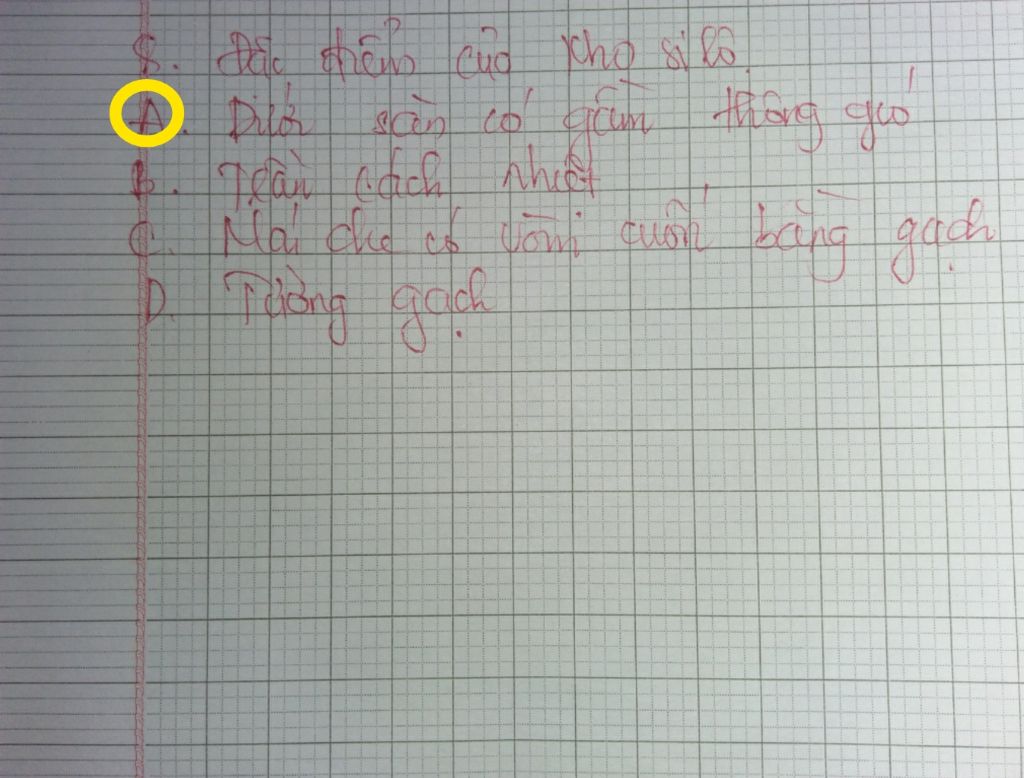 8. Đặc điểm của kho silô
A. Dưới sàn có gầm thông gió
B. Trần cách nhiệt
C. Mái che có vòm cuốn bằng gạch
D. Tường gạch